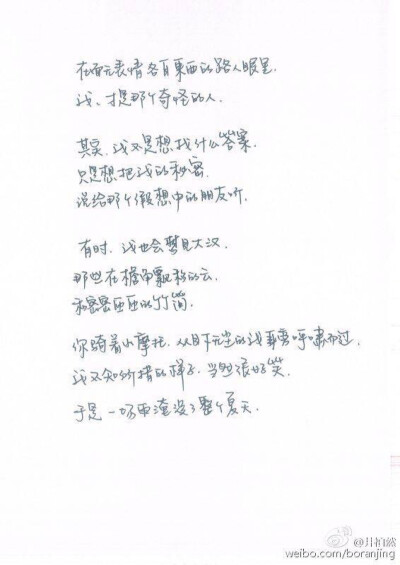 在面无表情各自东西的路人眼里,
我、才是那个奇怪的人.
其实,我只是想找什么答案,
只是想把我的秘密,
说给那个假想中的朋友听.
有时,我也会梦见大汉,
那些在檐角飘移的云
和密密匝匝的竹简.
你骑着小摩托,从目下无尘的我耳旁呼啸而过.
我又矜持的样子,当然很好笑.
于是一场雨淹没了整个夏天.
@井柏然
weibo.com/boranjing